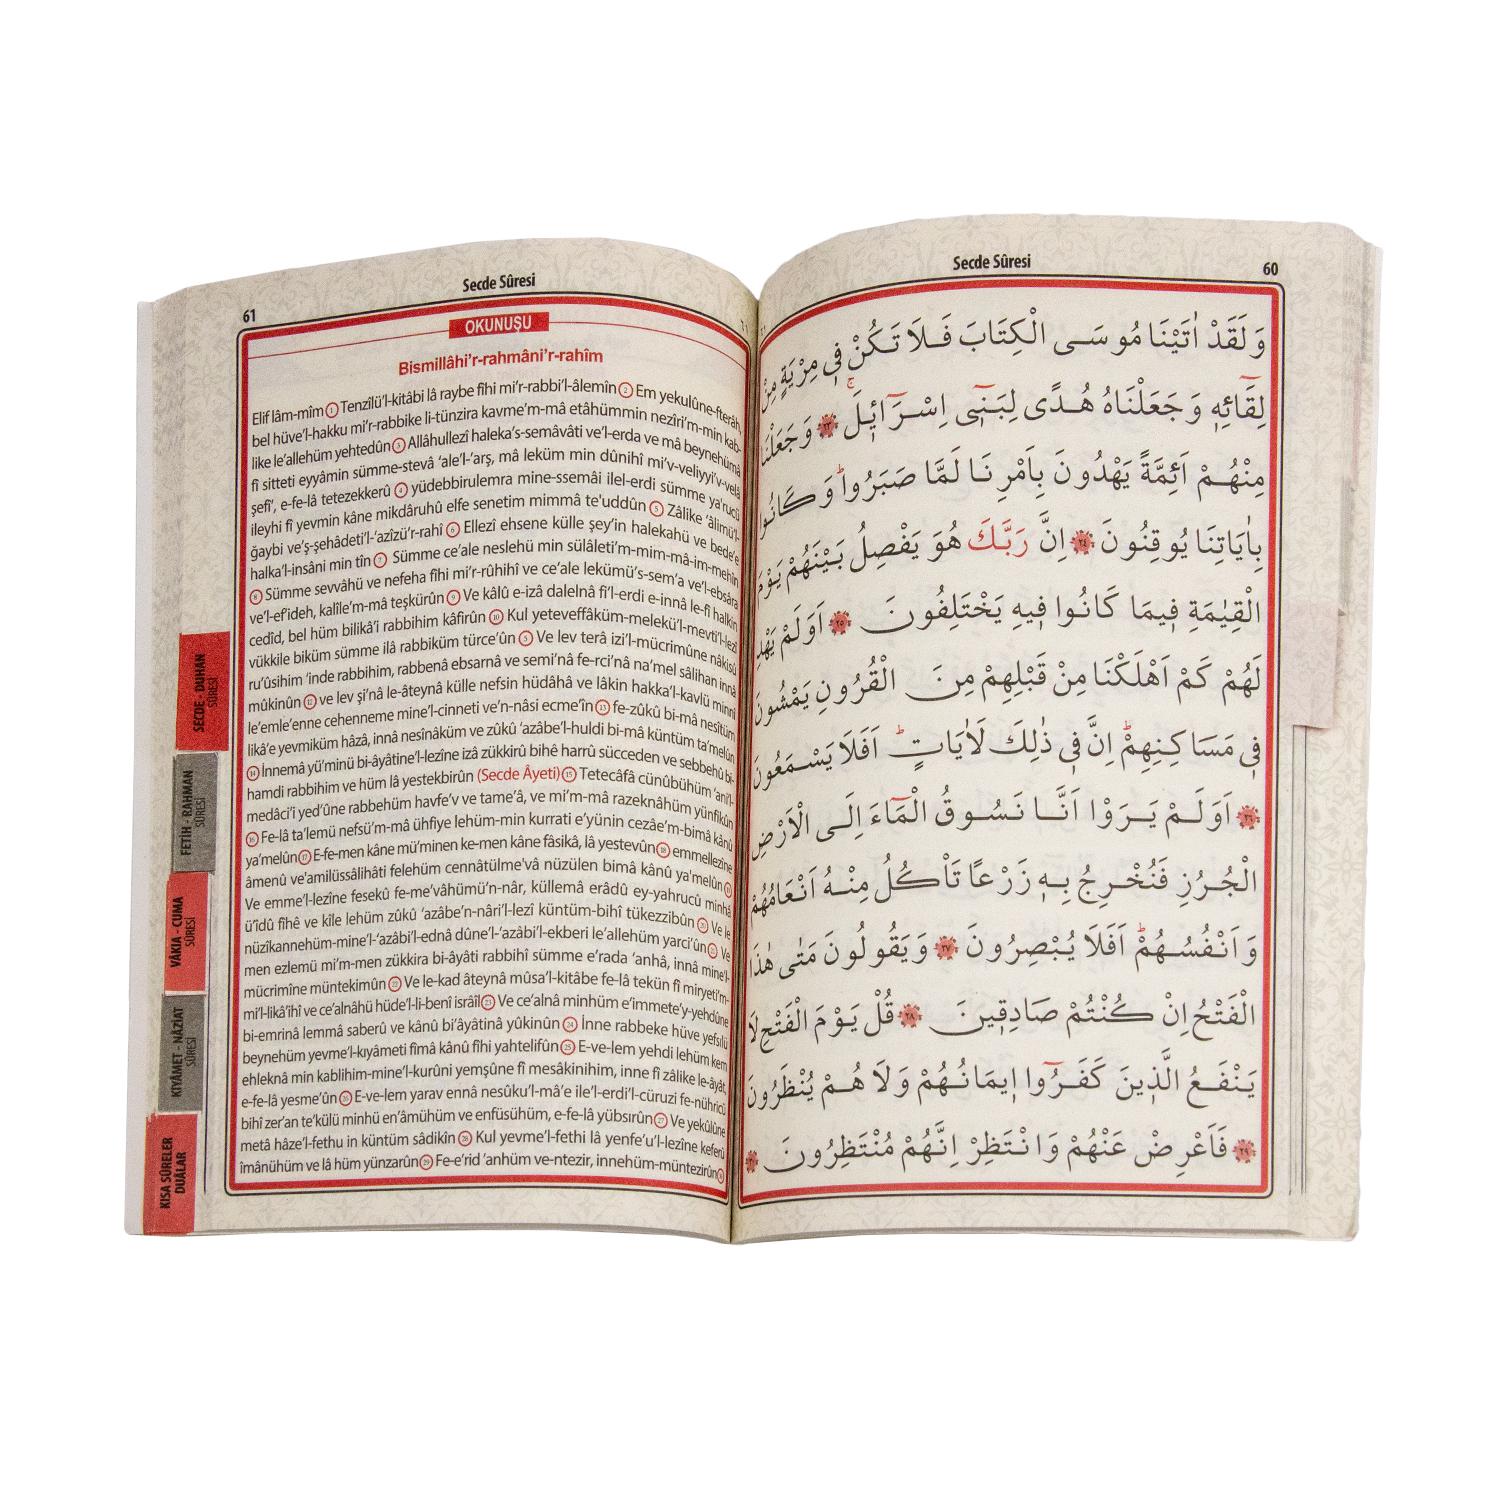 Secde Sûresi
60
وَلَقَدْ اٰتَيْنَا مُوسَى الْكِتَابَ فَلَا تَكُنْ فٖى مِرْيَةٍ مِنْ
لِقَٓائِهٖ وَجَعَلْنَاهُ هُدًى لِبَنٖٓى اِسْرَٓائٖلَۚ ﴿٢٣﴾ وَجَعَلْنَا
مِنْهُمْ اَئِمَّةً يَهْدُونَ بِاَمْرِنَا لَمَّا صَبَرُواؕ وَكَانُوا
بِاٰيَاتِنَا يُوقِنُونَ ﴿٢٤﴾ اِنَّ رَبَّكَ هُوَ يَفْصِلُ بَيْنَهُمْ يَوْمَ
الْقِيٰمَةِ فٖيمَا كَانُوا فٖيهِ يَخْتَلِفُونَ ﴿٢٥﴾ اَوَلَمْ يَهْدِ
لَهُمْ كَمْ اَهْلَكْنَا مِنْ قَبْلِهِمْ مِنَ الْقُرُونِ يَمْشُونَ
فٖى مَسَاكِنِهِمْؕ اِنَّ فٖى ذٰلِكَ لَاٰيَاتٍؕ اَفَلَا يَسْمَعُونَ
﴿٢٦﴾ اَوَلَمْ يَرَوْا اَنَّا نَسُوقُ الْمَٓاءَ اِلَى الْاَرْضِ
الْجُرُزِ فَنُخْرِجُ بِهٖ زَرْعًا تَاْكُلُ مِنْهُ اَنْعَامُهُمْ
وَاَنْفُسُهُمْؕ اَفَلَا يُبْصِرُونَ ﴿٢٧﴾ وَيَقُولُونَ مَتٰى هٰذَا
الْفَتْحُ اِنْ كُنْتُمْ صَادِقٖينَ ﴿٢٨﴾ قُلْ يَوْمَ الْفَتْحِ لَا
يَنْفَعُ الَّذٖينَ كَفَرُٓوا اٖيمَانُهُمْ وَلَا هُمْ يُنْظَرُونَ
﴿٢٩﴾ فَاَعْرِضْ عَنْهُمْ وَانْتَظِرْ اِنَّهُمْ مُنْتَظِرُونَ
61
Secde Sûresi
OKUNUŞU
Bismillâhi'r-rahmâni'r-rahîm
Elif lâm-mîm 1 Tenzîlü'l-kitâbi lâ raybe fîhi mi'r-rabbi'l-âlemîn 2 Em yekulûne-fterâh,
bel hüve'l-hakku mi'r-rabbike li-tünzira kavme'm-mâ etâhümmin nezîri'm-min kab-
like le'allehüm yehtedûn 3 Allâhullezî haleka's-semâvâti ve'l-erda ve mâ beynehümâ
fî sitteti eyyâmin sümme-stevâ 'ale'l-'arş, mâ leküm min dûnihî mi'v-veliyyi'v-velâ
şefî', e-fe-lâ tetezekkerû 4 yüdebbirulemra mine-ssemâi ilel-erdi sümme ya'rucü
ileyhi fî yevmin kâne mikdâruhû elfe senetim mimmâ te'uddûn 5 Zâlike 'âlimü'l-
ğaybi ve'ş-şehâdeti'l-'azîzü'r-rahî 6 Ellezî ehsene külle şey'in halekahü ve bede'e
halka'l-insâni min tîn 7 Sümme ce'ale neslehü min sülâleti'm-mim-mâ-im-mehîn
8 Sümme sevvâhü ve nefeha fîhi mi'r-rûhihî ve ce'ale lekümü's-sem'a ve'l-ebsâra
ve'l-ef'ideh, kalîle'm-mâ teşkürûn 9 Ve kâlû e-izâ dalelnâ fi'l-erdi e-innâ le-fî halkin
cedîd, bel hüm bilikâ'i rabbihim kâfirûn 10 Kul yeteveffâküm-melekü'l-mevti'l-lezî
vükkile biküm sümme ilâ rabbiküm türce'ûn 5 Ve lev terâ izi'l-mücrimûne nâkisû
ru'ûsihim 'inde rabbihim, rabbenâ ebsarnâ ve semi'nâ fe-rci'nâ na'mel sâlihan innâ
mûkinûn 12 ve lev şi'nâ le-âteynâ külle nefsin hüdâhâ ve lâkin hakka'l-kavlü minnî
le'emle'enne cehenneme mine'l-cinneti ve'n-nâsi ecme'în 13 fe-zûkû bi-mâ nesîtüm
likâ'e yevmiküm hâzâ, innâ nesînâküm ve zûkû 'azâbe'l-huldi bi-mâ küntüm ta'melûn
14 İnnemâ yü'minü bi-âyâtine'l-lezîne izâ zükkirû bihê harrû sücceden ve sebbehû bi-
hamdi rabbihim ve hüm lâ yestekbirûn (Secde Âyeti) 15 Tetecâfâ cünûbühüm 'ani'l-
medâci'i yed'ûne rabbehüm havfe'v ve tame'â, ve mi'm-mâ razeknâhüm yünfikûn
16 Fe-lâ ta'lemü nefsü'm-mâ ühfiye lehüm-min kurrati e'yünin cezâe'm-bimâ kânû
ya'melûn 17 E-fe-men kâne mü'minen ke-men kâne fâsikâ, lâ yestevûn 18 emmellezîne
âmenû ve'amilüssâlihâti felehüm cennâtülme'vâ nüzülen bimâ kânû ya'melûn 19
Ve emme'l-lezîne fesekû fe-me'vâhümü'n-nâr, küllemâ erâdû ey-yahrucû minhâ
ü'îdû fîhê ve kîle lehüm zûkû 'azâbe'n-nâri'l-lezî küntüm-bihî tükezzibûn 20 Ve le
nüzîkannehüm-mine'l-'azâbi'l-ednâ dûne'l-'azâbi'l-ekberi le'allehüm yarci'ûn 21 Ve
men ezlemü mi'm-men zükkira bi-âyâti rabbihî sümme e'rada 'anhâ, innâ mine'l-
mücrimîne müntekimûn 22 Ve le-kad âteynâ mûsa'l-kitâbe fe-lâ tekün fî miryeti'm-
mi'l-likâ'ihî ve ce'alnâhü hüde'l-li-benî isrâîl 23 Ve ce'alnâ minhüm e'immete'y-yehdûne
bi-emrinâ lemmâ saberû ve kânû bi'âyâtinâ yûkinûn 24 İnne rabbeke hüve yefsılü
beynehüm yevme'l-kıyâmeti fîmâ kânû fîhi yahtelifûn 25 E-ve-lem yehdi lehüm kem
ehleknâ min kablihim-mine'l-kurûni yemşûne fî mesâkinihim, inne fî zâlike le-âyât,
e-fe-lâ yesme'ûn 26 E-ve-lem yarav ennâ nesûku'l-mâ'e ile'l-erdi'l-cüruzi fe-nühricü
bihî zer'an te'külü minhü en'âmühüm ve enfüsühüm, e-fe-lâ yübsırûn 27 Ve yekûlûne
metâ hâze'l-fethu in küntüm sâdikîn 28 Kul yevme'l-fethi lâ yenfe'u'l-lezîne keferû
îmânühüm ve lâ hüm yünzarûn 29 Fe-e'rid 'anhüm ve-ntezir, innehüm-müntezirûn
SECDE - DUHAN
SÛRESİ
FETİH - RAHMAN
SÛRESİ
VÂKIA - CUMA
SÛRESİ
KIYÂMET - NÂZİAT
SÛRESİ
KISA SÛRELER
DUÂLAR